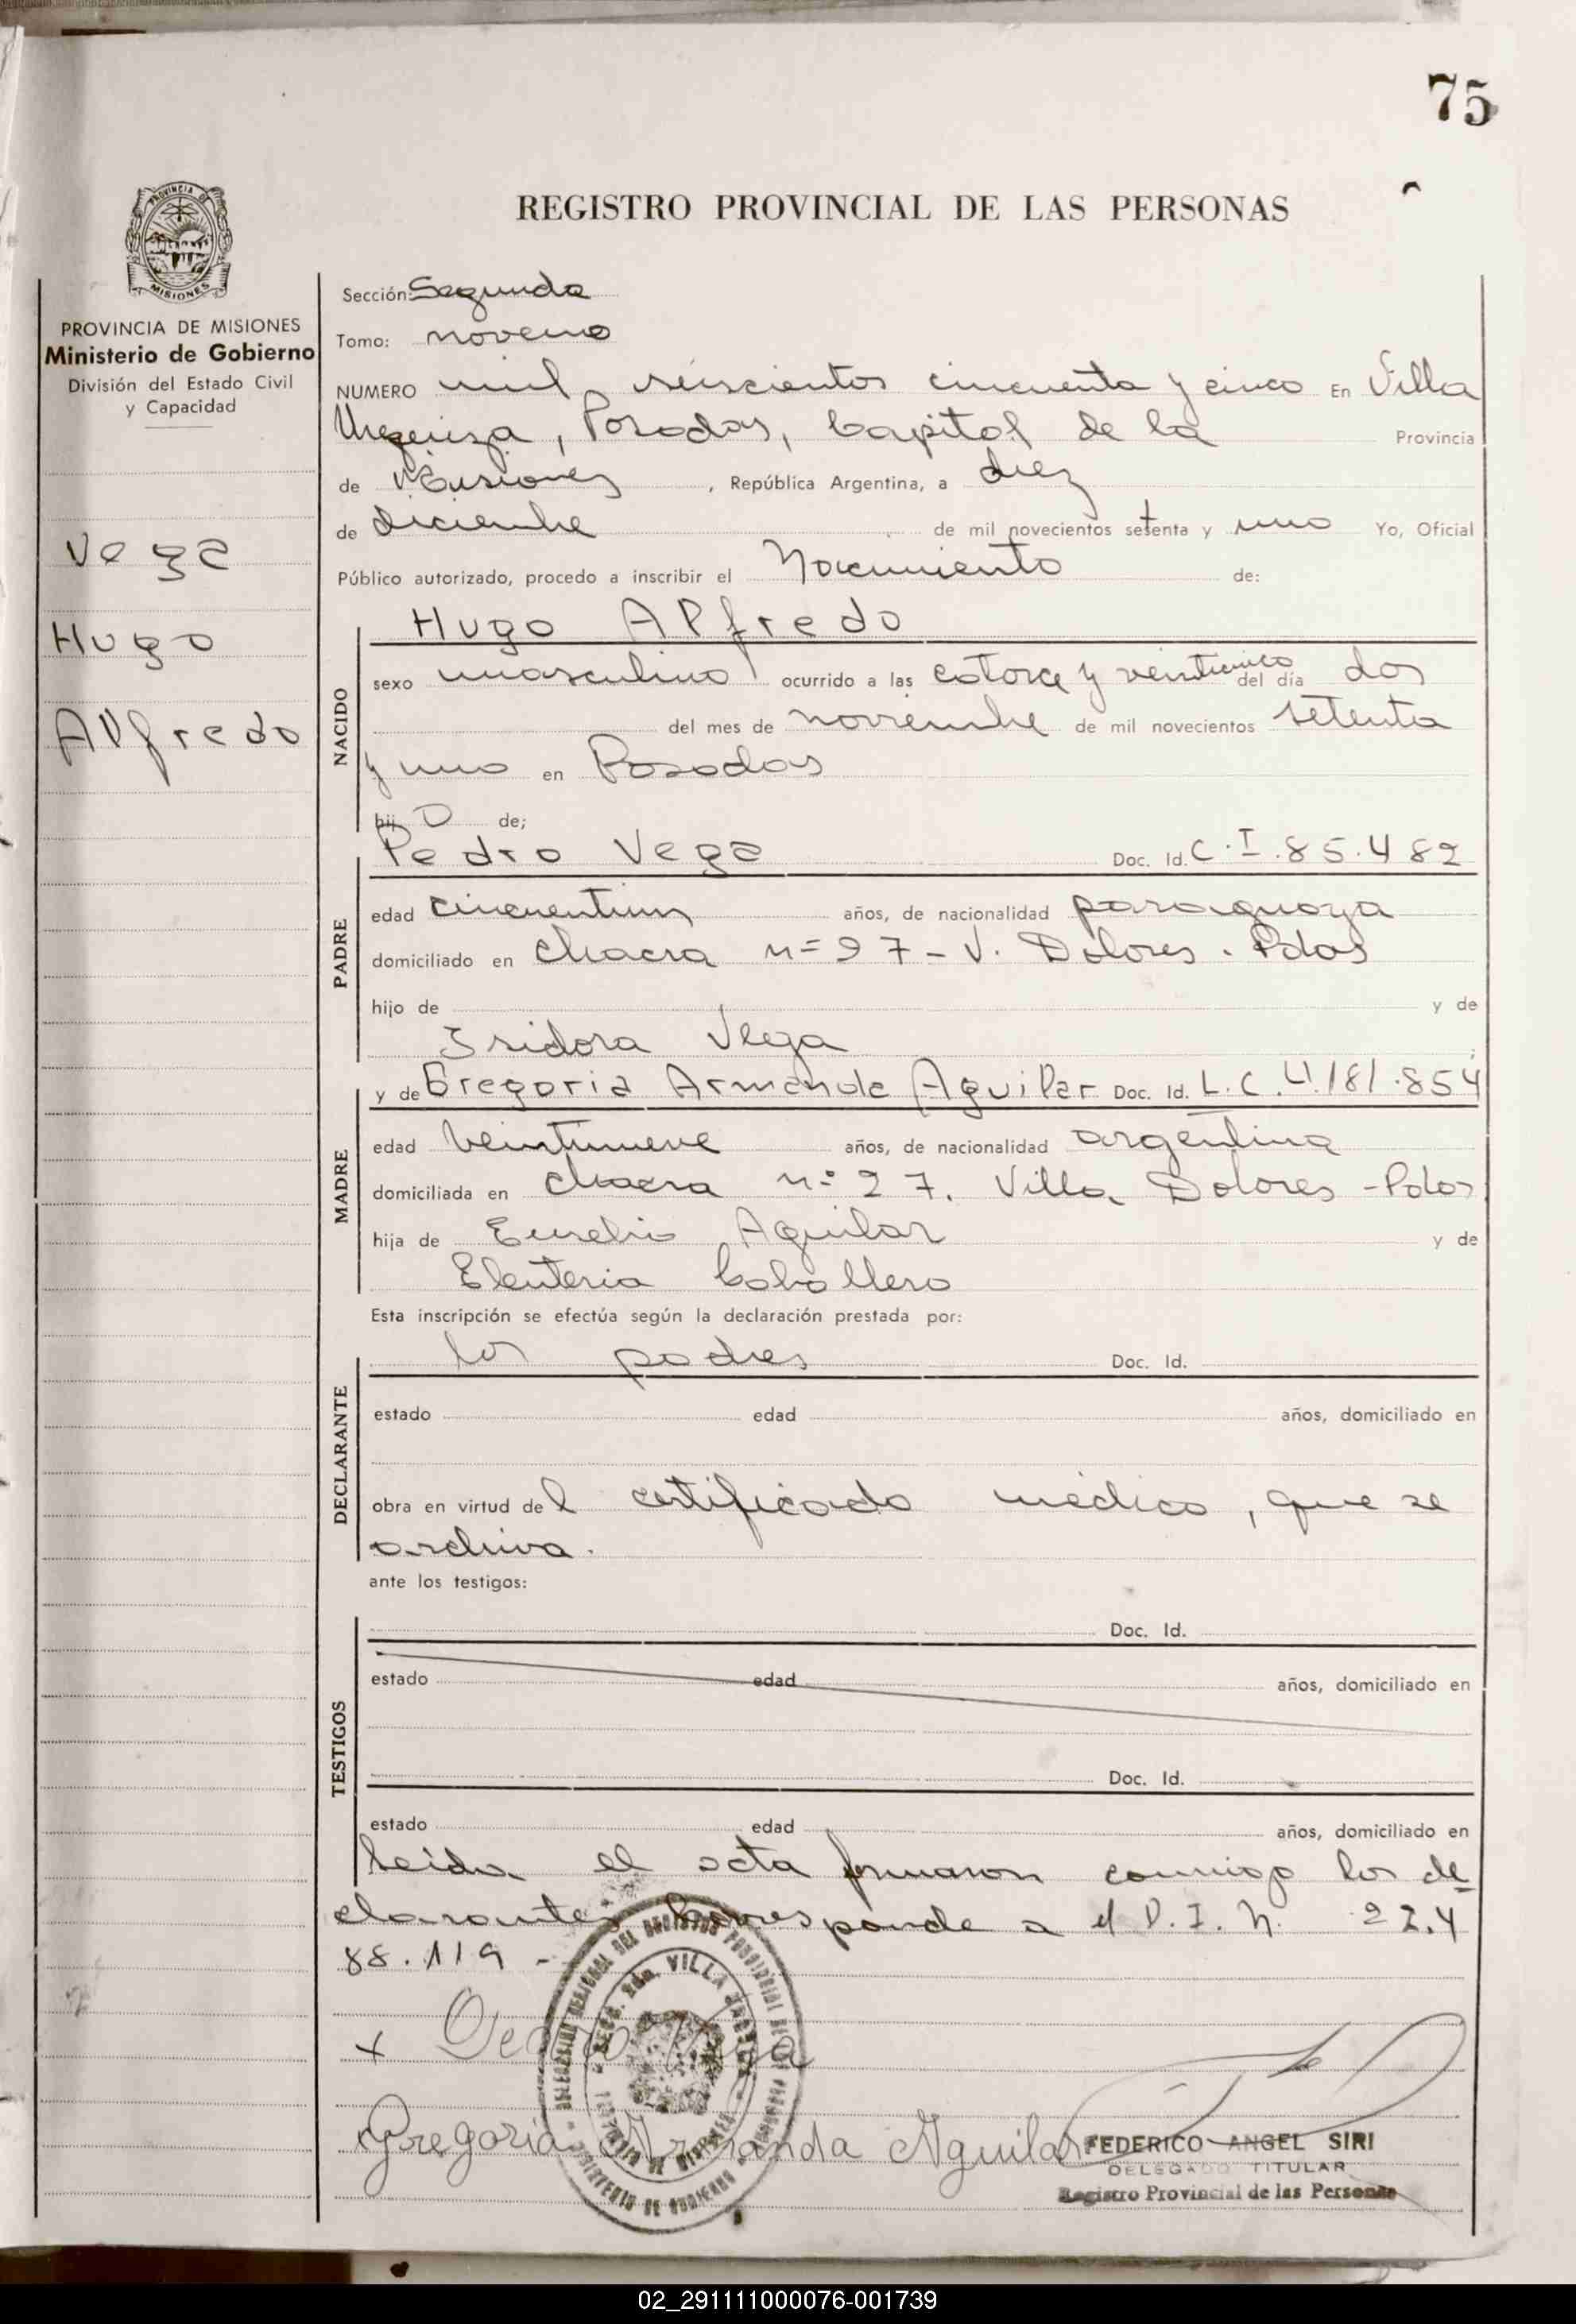 75
PROVINCIA DE
MISIONES
REGISTRO PROVINCIAL DE LAS PERSONAS
PROVINCIA DE MISIONES
Ministerio de Gobierno
División del Estado Civil
y Capacidad
Vega
Hugo
Alfredo
Sección: Segunda
Tomo: noveno
NUMERO mil seiscientos cincuenta y cinco En Villa
Urquiza, Posadas, Capital de la Provincia
de Misiones, República Argentina, a diez
de diciembre de mil novecientos setenta y uno Yo, Oficial
Público autorizado, procedo a inscribir el Nacimiento de:
NACIDO
Hugo Alfredo
sexo masculino ocurrido a las catorce y veinticinco del día dos
del mes de noviembre de mil novecientos setenta
y uno en Posadas
hijo de;
PADRE
Pedro Vega Doc. Id. C.I.85.482
edad cincuentiun años, de nacionalidad paraguaya
domiciliado en chacra n=27-V. Dolores. Pdas
hijo de y de
Isidora Vega
MADRE
y de Gregoria Armanda Aguilar Doc. Id. L.C.4.181.854
edad veintinueve años, de nacionalidad argentina
domiciliada en chacra n=27. Villa Dolores - Pdas
hija de Eusebio Aguilar y de
Eleuteria Caballero
Esta inscripción se efectúa según la declaración prestada por:
DECLARANTE
los padres Doc. Id.
estado edad años, domiciliado en
obra en virtud del certificado médico, que se
archiva.
ante los testigos:
TESTIGOS
Doc. Id.
estado edad años, domiciliado en
Doc. Id.
estado edad años, domiciliado en
Leida el acta firmaron conmigo los de
clarantes Corresponde a el D.I.N. 22.4
88.119 -
x Pedro Vega
Gregoria Armanda Aguilar
FEDERICO ANGEL SIRI
DELEGADO TITULAR
Registro Provincial de las Personas
02_291111000076-001739